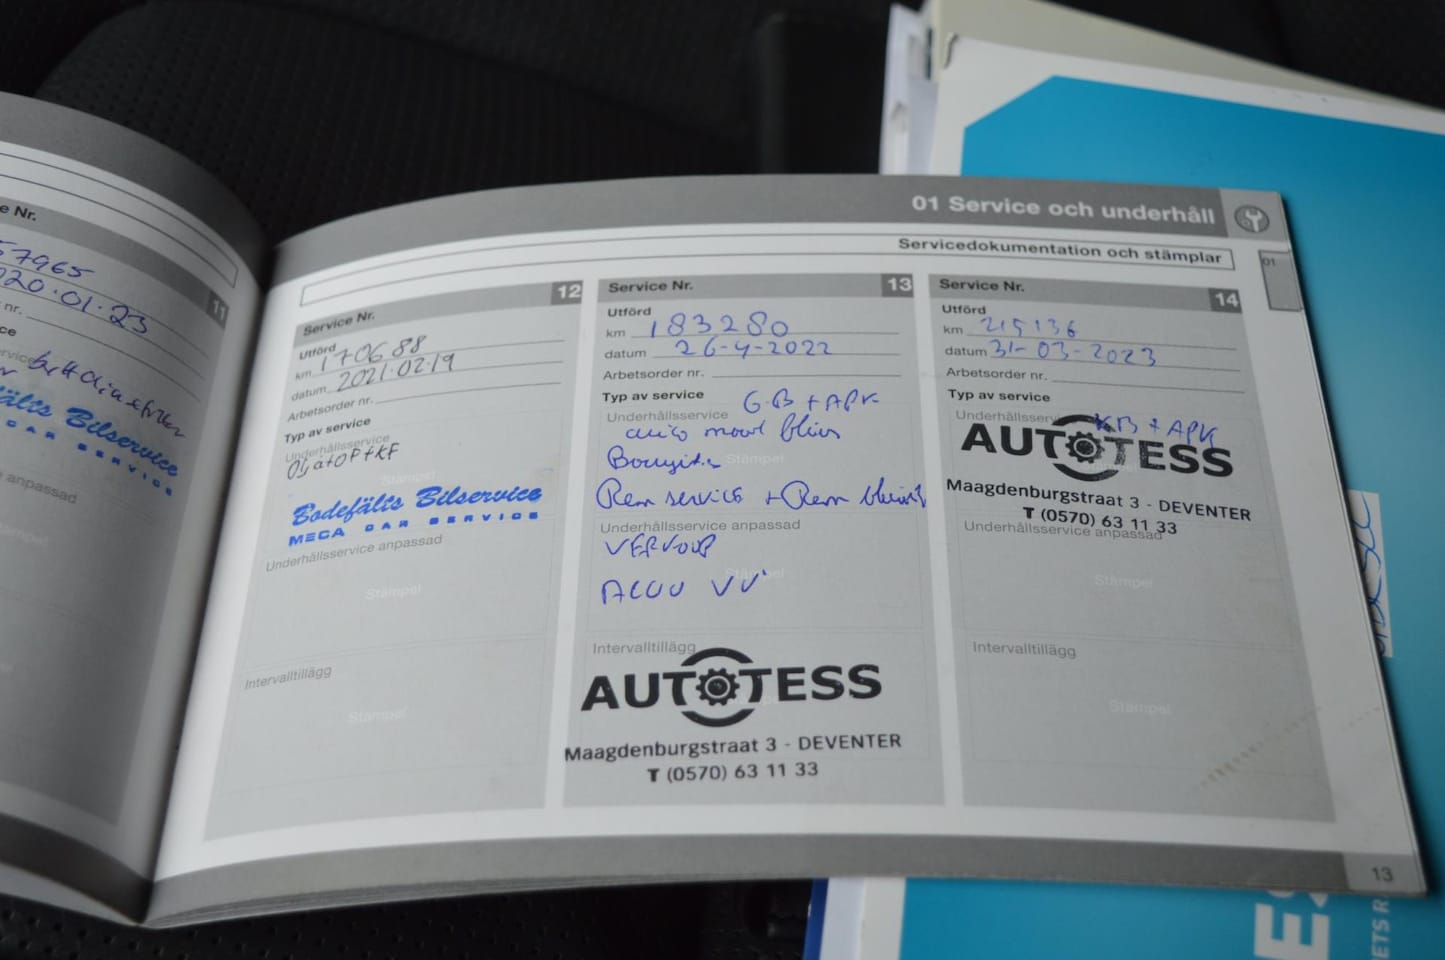 01 Service och underhåll
Servicedokumentation och stämplar
01
e Nr.
11
57965
020.01.23
nr.
Bilservice
CAR SERVICE
e anpassad
Service Nr. 12
Utförd
km 170688
datum 2021.02.19
Arbetsorder nr.
Typ av service
Underhållsservice
Olja+OF+KF
Stämpel
Bodefälts Bilservice
MECA CAR SERVICE
Underhållsservice anpassad
Stämpel
Intervalltillägg
Stämpel
Service Nr. 13
Utförd
km 183280
datum 26-4-2022
Arbetsorder nr.
Typ av service
Underhållsservice G.B + APK
Stämpel
Rem service + Rem
Underhållsservice anpassad
Stämpel
ACCU VV
Intervalltillägg
AUTOTESS
Maagdenburgstraat 3 - DEVENTER
T (0570) 63 11 33
Service Nr. 14
Utförd
km 215136
datum 31-03-2023
Arbetsorder nr.
Typ av service
Underhållsservice
KB + APK
AUTOTESS
Maagdenburgstraat 3 - DEVENTER
T (0570) 63 11 33
Underhållsservice anpassad
Stämpel
Intervalltillägg
Stämpel
13
ETS R